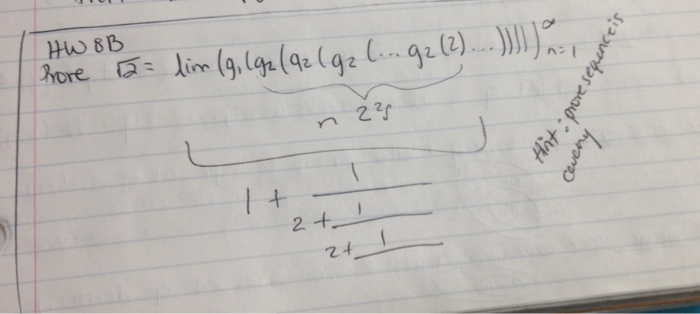 HW 8B
Prove √2 = lim (g₁(g₂(g₂(g₂(...g₂(2)...)))))^∞ n=1
n 2's
1 + 1
2 + 1
2 + 1
Hint: prove sequence is
cauchy